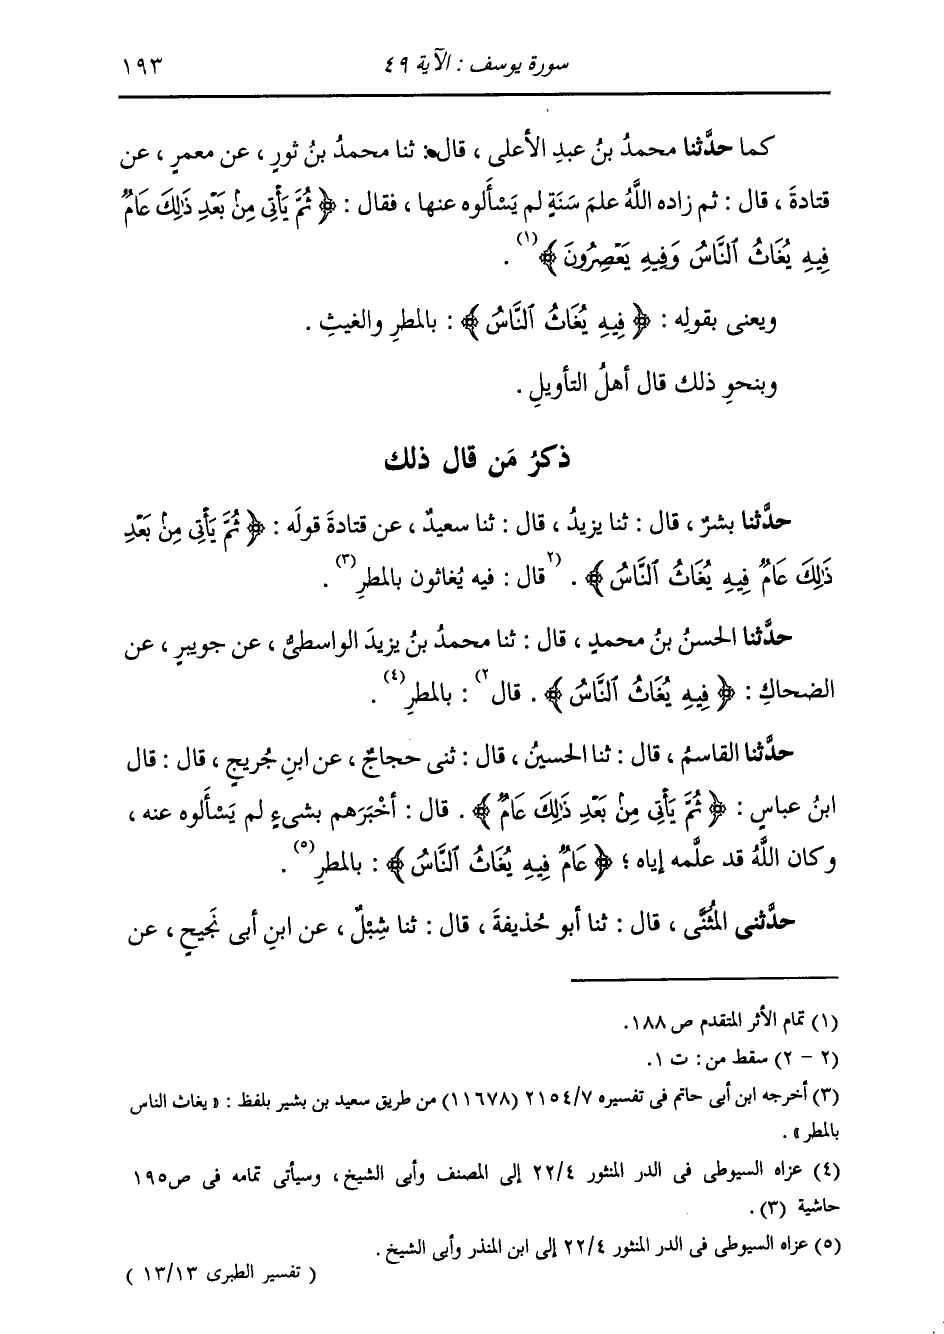 سورة يوسف : الآية ٤٩ ١٩٣
كما حدَّثنا محمدُ بنُ عبدِ الأعلى ، قال : ثنا محمدُ بنُ ثورٍ ، عن معمرٍ ، عن
قتادةَ ، قال : ثم زاده اللَّهُ علمَ سَنَةٍ لم يَسْألوه عنها ، فقال : ﴿ ثُمَّ يَأْتِى مِنۢ بَعْدِ ذَٰلِكَ عَامٌ
فِيهِ يُغَاثُ ٱلنَّاسُ وَفِيهِ يَعْصِرُونَ ﴾(١) .
ويعنى بقولِه : ﴿ فِيهِ يُغَاثُ ٱلنَّاسُ ﴾ : بالمطرِ والغيثِ .
وبنحوِ ذلك قال أهلُ التأويلِ .
ذكرُ مَن قال ذلك
حدَّثنا بشرٌ ، قال : ثنا يزيدُ ، قال : ثنا سعيدٌ ، عن قتادةَ قولَه : ﴿ ثُمَّ يَأْتِى مِنۢ بَعْدِ
ذَٰلِكَ عَامٌ فِيهِ يُغَاثُ ٱلنَّاسُ ﴾ . (٢ قال : فيه يُغاثون بالمطرِ(٣) .
حدَّثنا الحسنُ بنُ محمدٍ ، قال : ثنا محمدُ بنُ يزيدَ الواسطىُّ ، عن جويبرٍ ، عن
الضحاكِ : ﴿ فِيهِ يُغَاثُ ٱلنَّاسُ ﴾ . قال ٢) : بالمطرِ(٤) .
حدَّثنا القاسمُ ، قال : ثنا الحسينُ ، قال : ثنى حجاجٌ ، عن ابنِ جُريجٍ ، قال : قال
ابنُ عباسٍ : ﴿ ثُمَّ يَأْتِى مِنۢ بَعْدِ ذَٰلِكَ عَامٌ ﴾ . قال : أخْبَرَهم بشىءٍ لم يَسْألوه عنه ،
وكان اللَّهُ قد علَّمه إياه ؛ ﴿ عَامٌ فِيهِ يُغَاثُ ٱلنَّاسُ ﴾ : بالمطرِ(٥) .
حدَّثنى المُثَنَّى ، قال : ثنا أبو حُذيفةَ ، قال : ثنا شِبْلٌ ، عن ابنِ أبى نَجيحٍ ، عن
(١) تمام الأثر المتقدم ص ١٨٨.
(٢ - ٢) سقط من : ت ١.
(٣) أخرجه ابن أبى حاتم فى تفسيره ٢١٥٤/٧ (١١٦٧٨) من طريق سعيد بن بشير بلفظ : « يغاث الناس
بالمطر » .
(٤) عزاه السيوطى فى الدر المنثور ٢٢/٤ إلى المصنف وأبى الشيخ ، وسيأتى تمامه فى ص١٩٥
حاشية (٣) .
(٥) عزاه السيوطى فى الدر المنثور ٢٢/٤ إلى ابن المنذر وأبى الشيخ .
( تفسير الطبرى ١٣/١٣ )